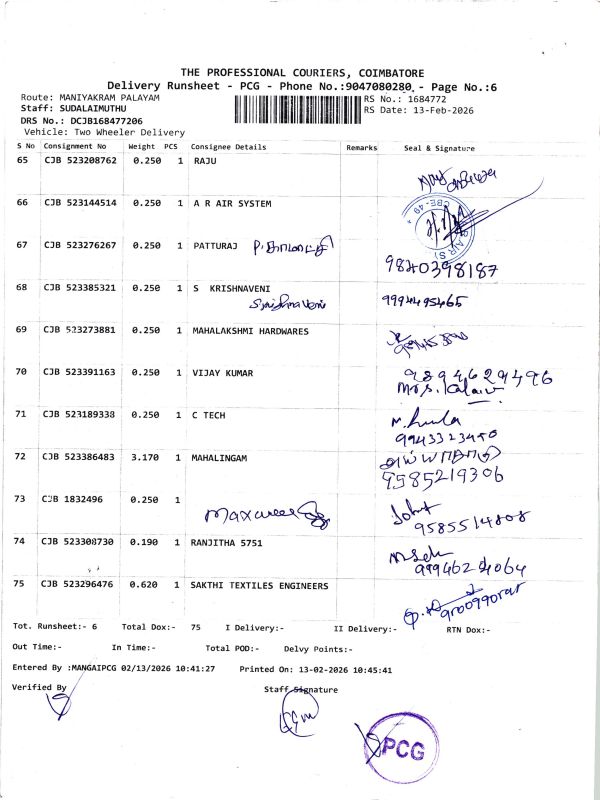 THE PROFESSIONAL COURIERS, COIMBATORE
Delivery Runsheet - PCG - Phone No.:9047080280, - Page No.:6
Route: MANIYAKRAM PALAYAM
RS No.: 1684772
Staff: SUDALAIMUTHU
RS Date: 13-Feb-2026
DRS No.: DCJB168477206
Vehicle: Two Wheeler Delivery
S No Consignment No Weight PCS Consignee Details Remarks Seal & Signature
65 CJB 523208762 0.250 1 RAJU
66 CJB 523144514 0.250 1 A R AIR SYSTEM
CBE-49
67 CJB 523276267 0.250 1 PATTURAJ
9840398187
68 CJB 523385321 0.250 1 S KRISHNAVENI
9994495465
69 CJB 523273881 0.250 1 MAHALAKSHMI HARDWARES
70 CJB 523391163 0.250 1 VIJAY KUMAR
9894629496
Mrs. Kalai
71 CJB 523189338 0.250 1 C TECH
9943323450
72 CJB 523386483 3.170 1 MAHALINGAM
9585219306
73 CJB 1832496 0.250 1
9585514808
74 CJB 523308730 0.190 1 RANJITHA 5751
9994624064
75 CJB 523296476 0.620 1 SAKTHI TEXTILES ENGINEERS
Tot. Runsheet:- 6 Total Dox:- 75 I Delivery:- II Delivery:- RTN Dox:-
Out Time:- In Time:- Total POD:- Delvy Points:-
Entered By :MANGAIPCG 02/13/2026 10:41:27 Printed On: 13-02-2026 10:45:41
Verified By Staff Signature
PCG